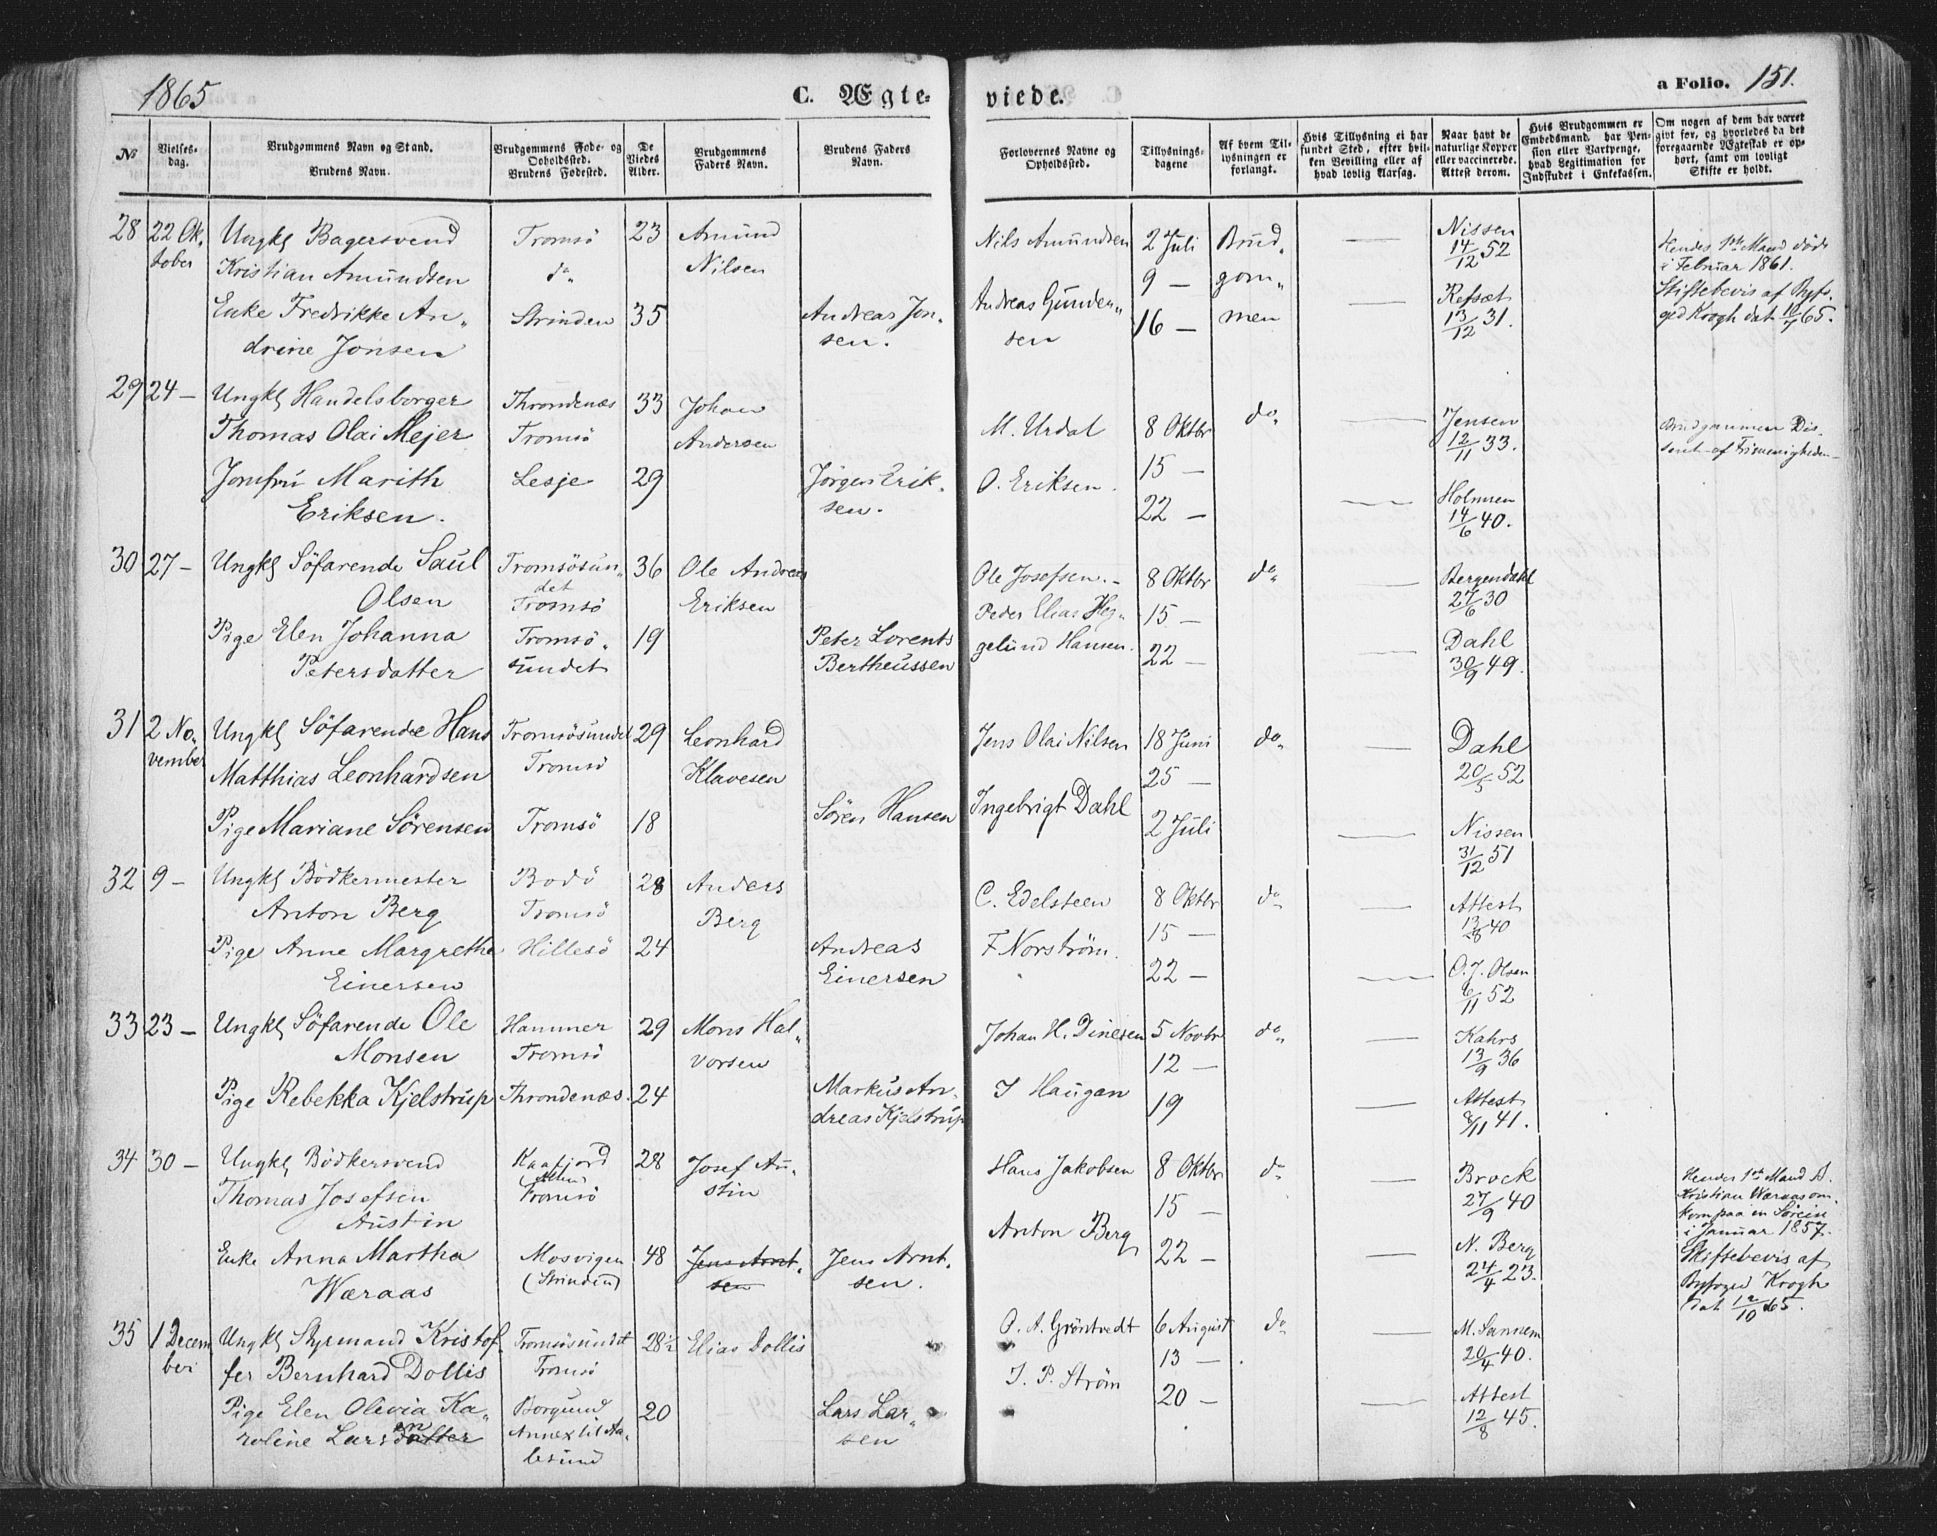 1865
C. Ægte-
viede.
a Folio. 151.
No
Vielses-
dag.
Brudgommens Navn og Stand.
Brudens Navn.
Brudgommens Føde- og
Opholdssted.
Brudens Fødested.
De
Viedes
Alder.
Brudgommens
Faders Navn.
Brudens Faders
Navn.
Forlovernes Navne og
Opholdssted.
Tillysnings-
dagene
Af hvem Til-
lysningen er
forlangt.
Hvis Tillysning ei har
fundet Sted, efter hvil-
ken Bevilling eller af
hvad lovlig Aarsag.
Naar havt de
naturlige Kopper
eller vaccinerede.
Attest derom.
Hvis Brudgommen er
Embedsmand, har Pen-
sion eller Vartpenge,
hvad Legitimation for
Indskudet i Enkekassen.
Om nogen af dem har været
givt før, og hvorledes da det
foregaaende Ægteskab er op-
hørt, samt om lovligt
Skifte er holdt.
28 22 Ok- Ungkl Bagersvend Tromsö 23 Amund
tober Kristian Amundsen do Nilsen
Enke Fredrikke An- Strinden 35 Andreas Jon-
drine Jonsen sen.
Nils Amundsen 2 Juli Brud- — Nissen
14/12 52
9 — gom-
Andreas Gunder- 16 — men — Refsæt
sen 13/12 31.
Hendes 1ste Mand døde
i Februar 1861.
Skiftebevis af Byfo-
ged Krogh dat 65.
29 24 — Ungkl Handelsborger Throndenæs 33 Johan
Thomas Olai Mejer Tromsö Andersen
Jomfru Marith Lesje 29 Jörgen Erik-
Eriksen. sen.
M. Urdal 8 Oktbr do — Jensen
15 — 12/11 33.
O. Eriksen. 22 — — Holmsen
14/6 40.
Brudgommen Dis-
sent af Frimenigheden —
30 27 — Ungkl Söfarende Saul Tromsösun- 36 Ole Andreas
Olsen det Tromsö Eriksen
Pige Elen Johanna Tromsö- 19 Peter Lorents
Petersdatter sundet Bertheussen
Ole Josefsen. — 8 Oktbr do — Bergendahl
27/6 30
Peder Elias Heg- 15 —
gelund Hansen. 22 — — Dahl
30/9 49.
31 2 No- Ungkl Söfarende Hans Tromsösundet 29 Leonhard
vember Matthias Leonhardsen Tromsö Klavesen
Pige Mariane Sörensen Tromsö 18 Sören Hansen
Jens Olai Nilsen 18 Juni do — Dahl
25 — 20/5 52
Ingebrigt Dahl 2 Juli — Nissen
31/12 51
32 9 — Ungkl Bödkermester Bodö 28 Anders
Anton Berg Tromsö Berg
Pige Anne Margrethe Hillesö 24 Andreas
Einersen Einersen
C. Edelsteen 8 Oktbr do — Attest
15 — 13/8 40
F Norström. 22 — — O. J. Olsen
6/11 52
33 23 — Ungkl Söfarende Ole Hammer 29 Mons Hal-
Monsen Tromsö vorsen
Pige Rebekka Kjelstrup Throndenæs. 24 Markus An-
dreas Kjelstrup
Johan H. Dinesen 5 Novbr do — Kahrs
12 — 13/9 36
J Haugan 19 — Attest
8/11 41.
34 30 — Ungkl Bödkersvend Kaafjord 28 Josef Au-
Thomas Josefsen (Alten) Tromsö stin
Austin
Enke Anna Martha Mosvigen 48 Jens Arnt- Jens Arnt-
Wæraas (Strinden) sen sen.
Hans Jakobsen 8 Oktbr do — Brock
15 — 27/9 40
Anton Berg 22 — — N. Berg
24/4 23.
Hendes 1ste Mand A.
Kristian Wæraas om-
kom paa en Söreise
i Januar 1857.
Skiftebevis af
Byfoged Krogh
dat 12/10 65.
35 1 Decem Ungkl Styrmand Kristof- Tromsösundet 28½ Elias Dollis
ber fer Bernhard Dollis Tromsö
Pige Elen Olivia Ka- Borgund 20 Lars Lar-
roline Larsdatter en Annex til Aa- sen
lesund
O. A. Gröntvedt 6 August do — M. Sannem
13 — 20/4 40.
J. P. Ström 20 — — Attest
12/8 45.